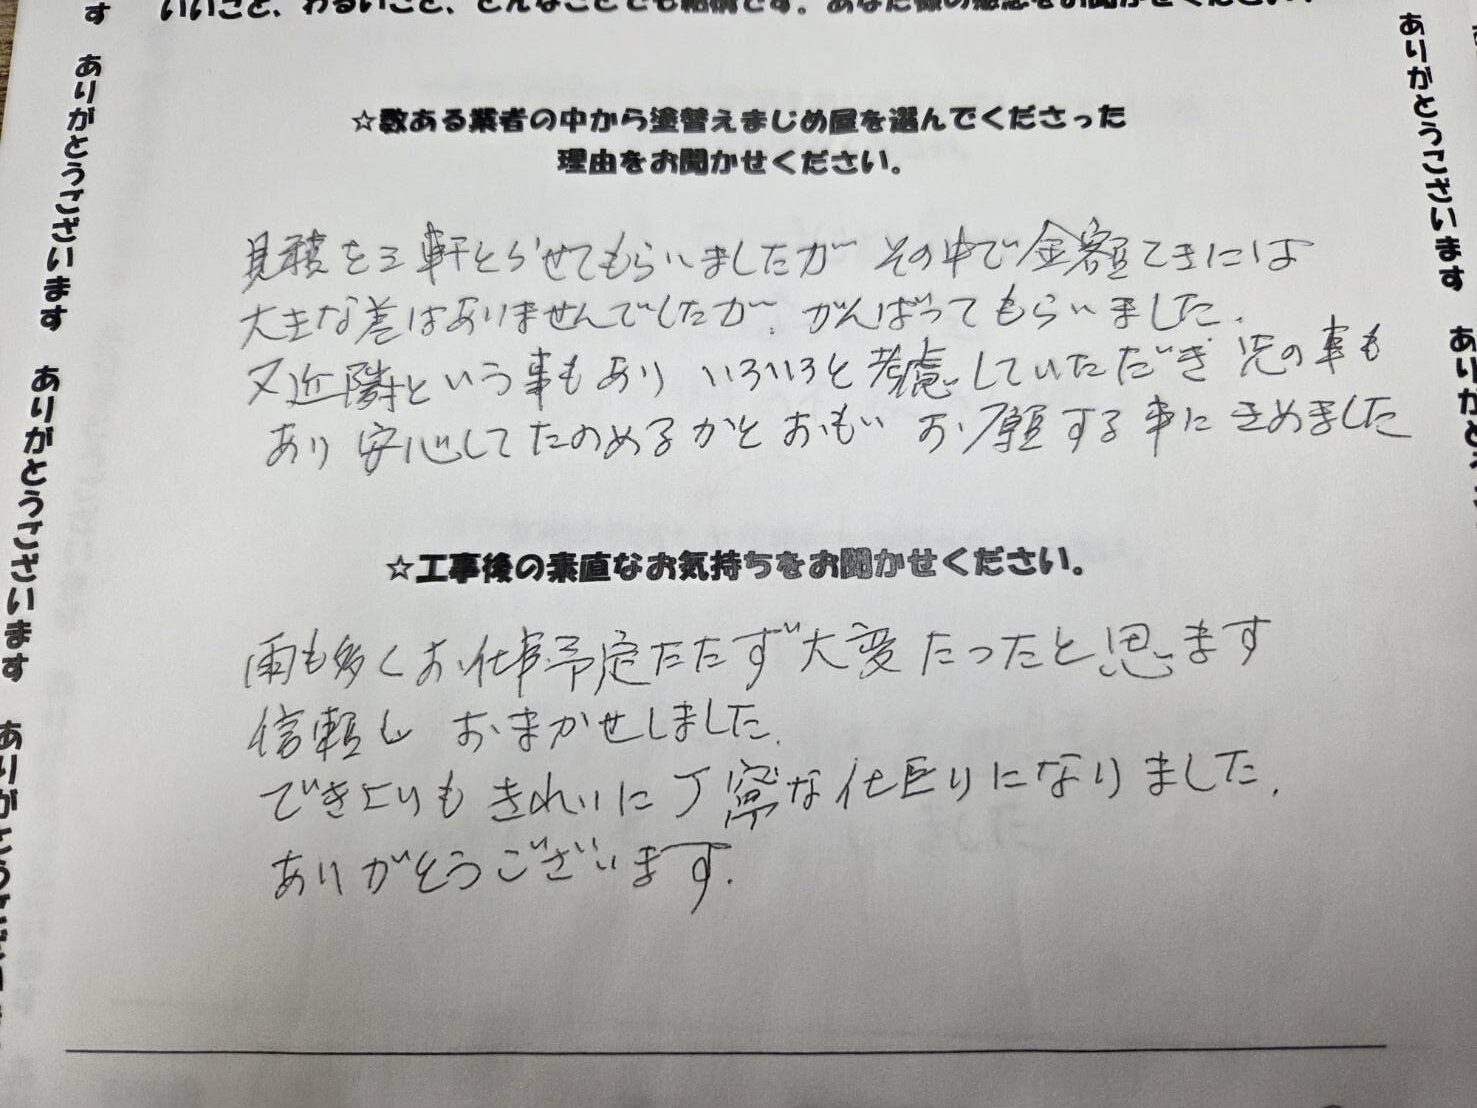 いいこと、わるいこと、どんなことでも結構です。あなた様の感想をお聞かせください。
☆数ある業者の中から塗替えまじめ屋を選んでくださった
理由をお聞かせください。
見積を三軒とらせてもらいましたが その中で金額てきには
大きな差はありませんでしたが、がんばってもらいました、
又近隣という事もあり いろいろと考慮していただき 先の事も
あり 安心してたのめるかとおもい お願する事にきめました
☆工事後の素直なお気持ちをお聞かせください。
雨も多くお仕事予定たたず大変たったと思います
信頼し おまかせしました、
できよりも きれいに丁寧な仕上りになりました、
ありがとうございます.
す ありがとうございます ありがとうございます ありがとうござい
ありがとうございます ありがとうご